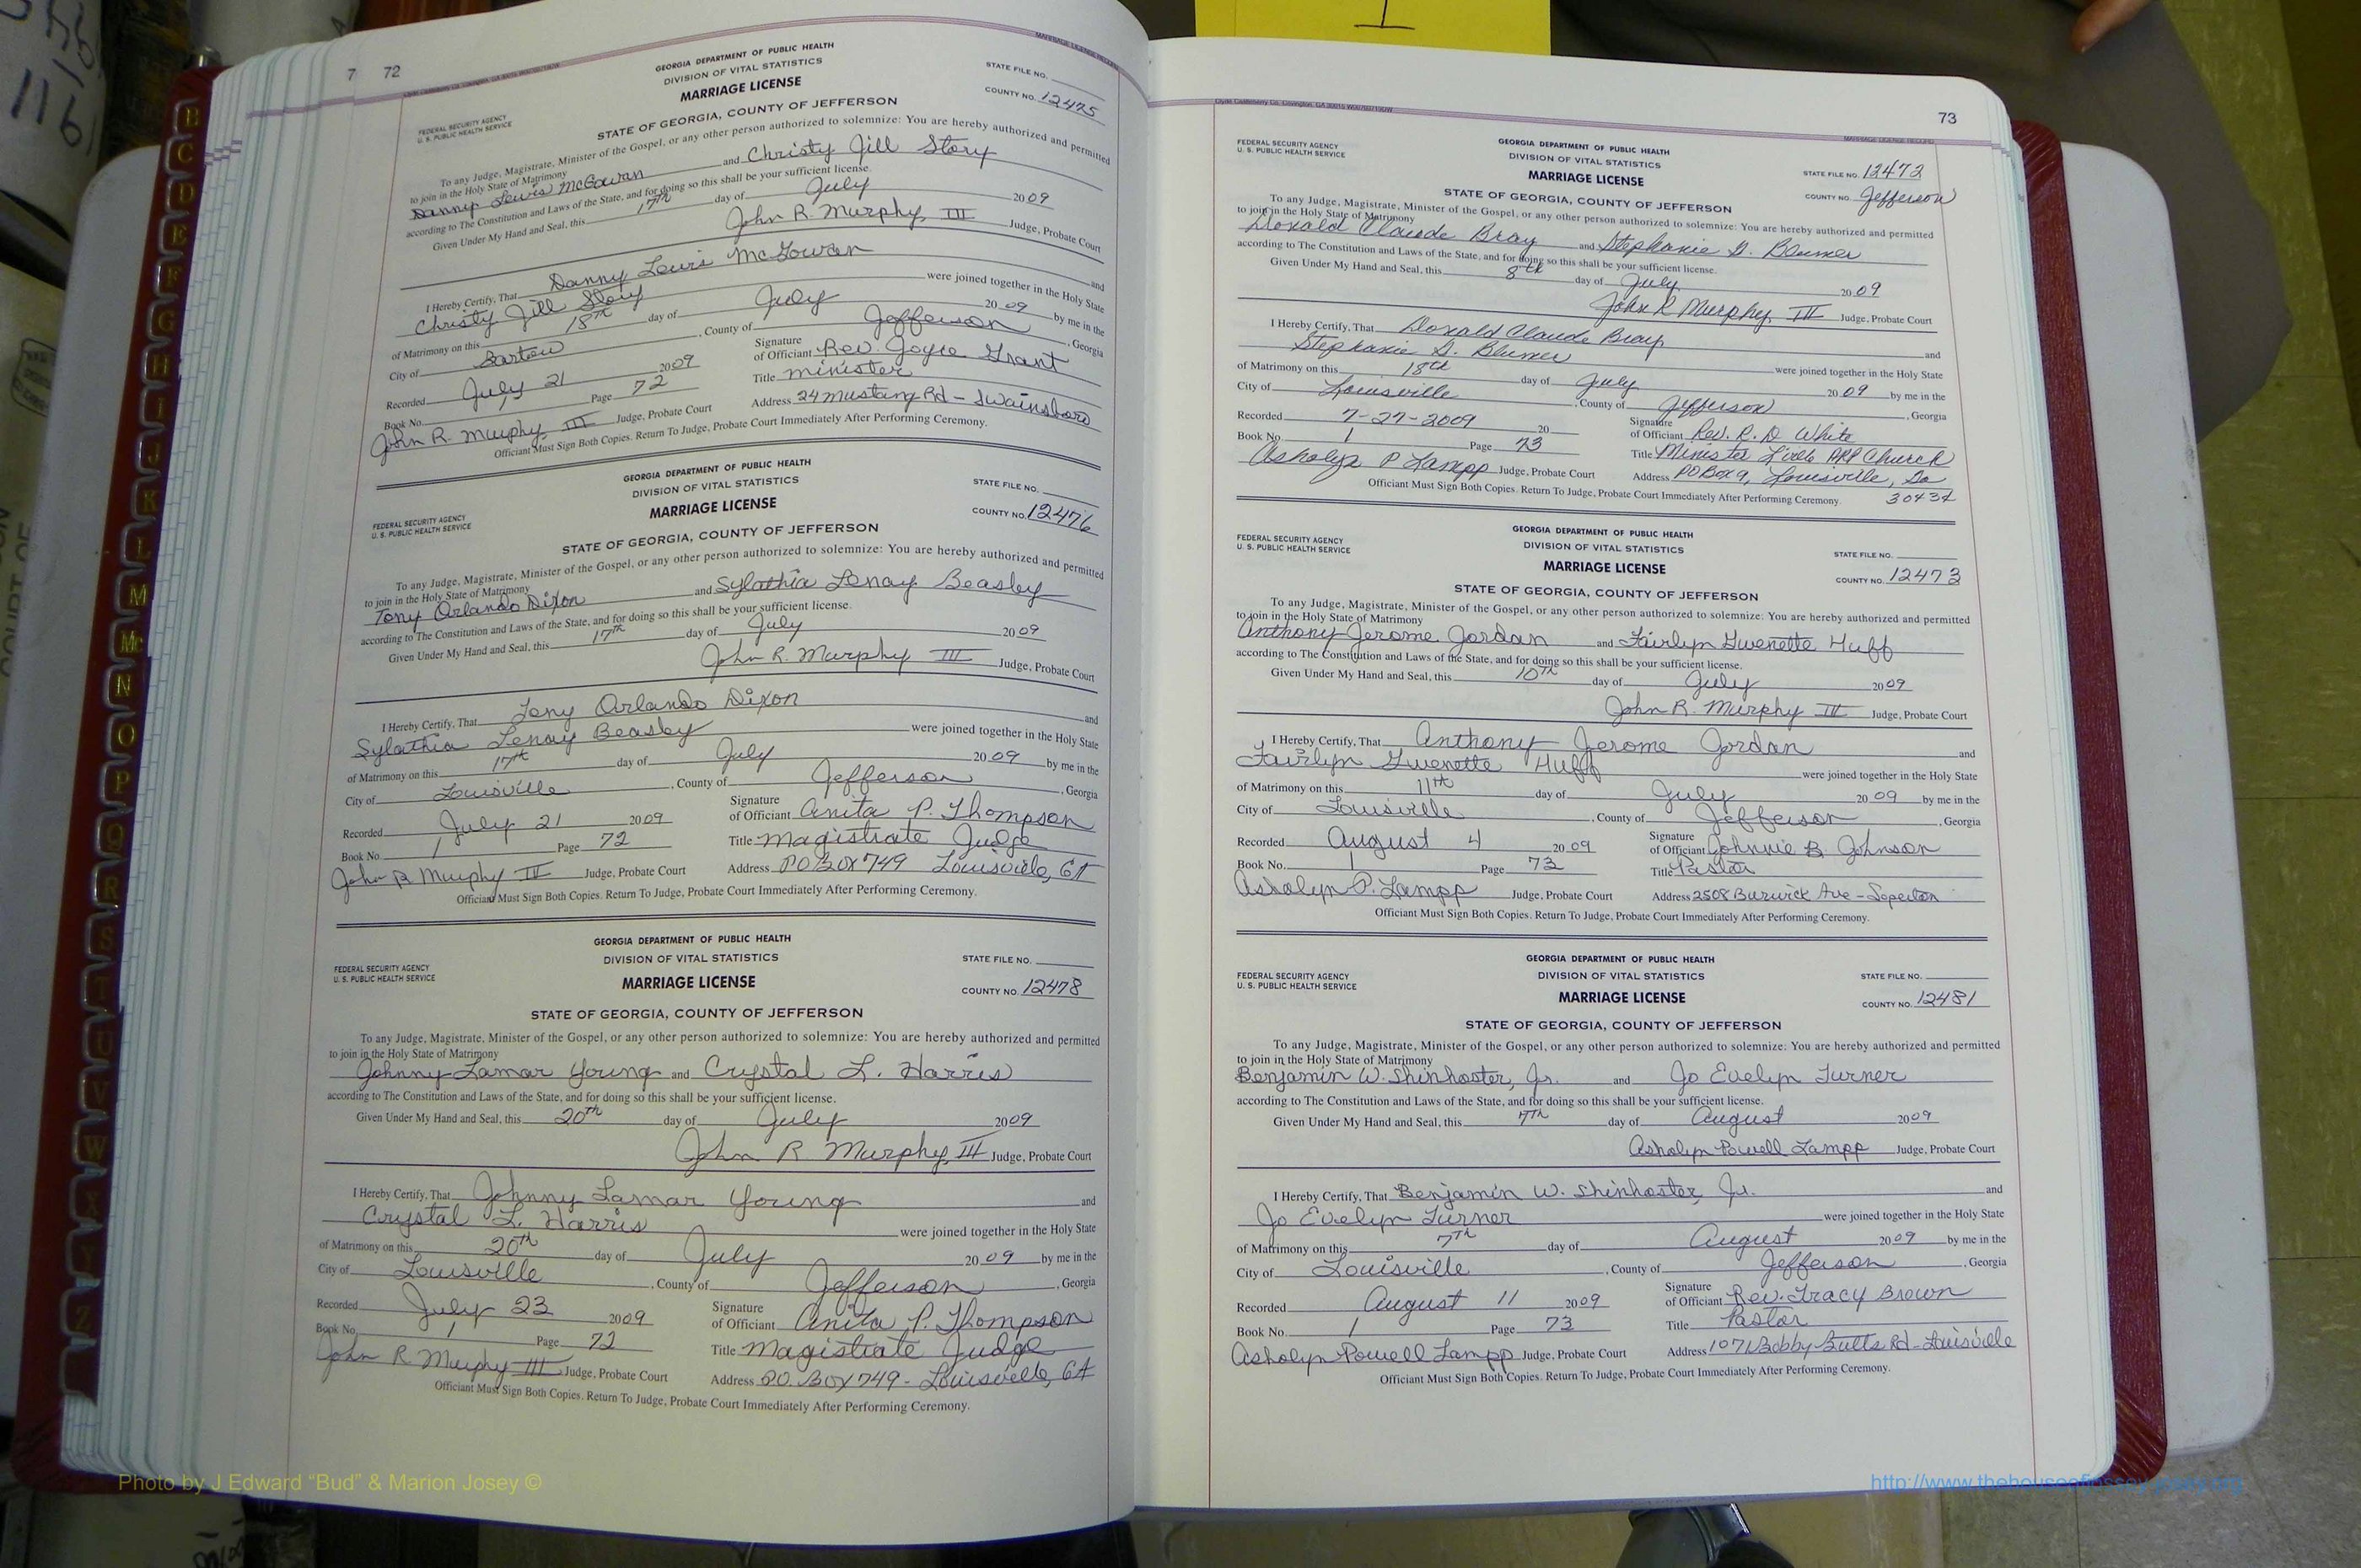 7 72
GEORGIA DEPARTMENT OF PUBLIC HEALTH
DIVISION OF VITAL STATISTICS
MARRIAGE LICENSE
STATE FILE NO.
COUNTY NO. 12475
FEDERAL SECURITY AGENCY
U. S. PUBLIC HEALTH SERVICE
STATE OF GEORGIA, COUNTY OF JEFFERSON
To any Judge, Magistrate, Minister of the Gospel, or any other person authorized to solemnize: You are hereby authorized and permitted
to join in the Holy State of Matrimony
Danny Lewis McGowan and Christy Jill Story
according to The Constitution and Laws of the State, and for doing so this shall be your sufficient license.
Given Under My Hand and Seal, this 17th day of July 2009
John R. Murphy, III Judge, Probate Court
I Hereby Certify, That Danny Lewis McGowan and
Christy Jill Story were joined together in the Holy State
of Matrimony on this 18th day of July 2009 by me in the
City of Bartow, County of Jefferson, Georgia
Recorded July 21 2009 Signature of Officiant Rev. Joyce Grant
Book No. Page 72 Title minister
John R. Murphy III Judge, Probate Court Address 24 Mustang Rd - Swainsboro
Officiant Must Sign Both Copies. Return To Judge, Probate Court Immediately After Performing Ceremony.
GEORGIA DEPARTMENT OF PUBLIC HEALTH
DIVISION OF VITAL STATISTICS
MARRIAGE LICENSE
STATE FILE NO.
COUNTY NO. 12476
FEDERAL SECURITY AGENCY
U. S. PUBLIC HEALTH SERVICE
STATE OF GEORGIA, COUNTY OF JEFFERSON
To any Judge, Magistrate, Minister of the Gospel, or any other person authorized to solemnize: You are hereby authorized and permitted
to join in the Holy State of Matrimony
Tony Orlando Dixon and Sylathia Lenay Beasley
according to The Constitution and Laws of the State, and for doing so this shall be your sufficient license.
Given Under My Hand and Seal, this 17th day of July 2009
John R. Murphy III Judge, Probate Court
I Hereby Certify, That Tony Orlando Dixon and
Sylathia Lenay Beasley were joined together in the Holy State
of Matrimony on this 17th day of July 2009 by me in the
City of Louisville, County of Jefferson, Georgia
Recorded July 21 2009 Signature of Officiant Anita P. Thompson
Book No. 1 Page 72 Title Magistrate Judge
John R Murphy III Judge, Probate Court Address PO Box 749 Louisville, GA
Officiant Must Sign Both Copies. Return To Judge, Probate Court Immediately After Performing Ceremony.
GEORGIA DEPARTMENT OF PUBLIC HEALTH
DIVISION OF VITAL STATISTICS
MARRIAGE LICENSE
STATE FILE NO.
COUNTY NO. 12478
FEDERAL SECURITY AGENCY
U. S. PUBLIC HEALTH SERVICE
STATE OF GEORGIA, COUNTY OF JEFFERSON
To any Judge, Magistrate, Minister of the Gospel, or any other person authorized to solemnize: You are hereby authorized and permitted
to join in the Holy State of Matrimony
Johnny Lamar Young and Crystal L. Harris
according to The Constitution and Laws of the State, and for doing so this shall be your sufficient license.
Given Under My Hand and Seal, this 20th day of July 2009
John R Murphy, III Judge, Probate Court
I Hereby Certify, That Johnny Lamar Young and
Crystal L. Harris were joined together in the Holy State
of Matrimony on this 20th day of July 2009 by me in the
City of Louisville, County of Jefferson, Georgia
Recorded July 23 2009 Signature of Officiant Anita P. Thompson
Book No. 1 Page 72 Title Magistrate Judge
John R Murphy III Judge, Probate Court Address P.O. Box 749 - Louisville, GA
Officiant Must Sign Both Copies. Return To Judge, Probate Court Immediately After Performing Ceremony.
73
MARRIAGE LICENSE RECORD
GEORGIA DEPARTMENT OF PUBLIC HEALTH
DIVISION OF VITAL STATISTICS
MARRIAGE LICENSE
STATE FILE NO. 12472
COUNTY NO. Jefferson
FEDERAL SECURITY AGENCY
U. S. PUBLIC HEALTH SERVICE
STATE OF GEORGIA, COUNTY OF JEFFERSON
To any Judge, Magistrate, Minister of the Gospel, or any other person authorized to solemnize: You are hereby authorized and permitted
to join in the Holy State of Matrimony
Donald Claude Bray and Stephanie G. Blumer
according to The Constitution and Laws of the State, and for doing so this shall be your sufficient license.
Given Under My Hand and Seal, this 8th day of July 2009
John R Murphy, III Judge, Probate Court
I Hereby Certify, That Donald Claude Bray
Stephanie G. Blumer and
were joined together in the Holy State
of Matrimony on this 18th day of July 2009 by me in the
City of Louisville, County of Jefferson, Georgia
Recorded 7-27-2009 20 Signature of Officiant Rev. R. D White
Book No. 1 Page 73 Title Minister L'ville ARP Church
Asholyn P Lampp Judge, Probate Court Address PO Box 9, Louisville, Ga
30434
Officiant Must Sign Both Copies. Return To Judge, Probate Court Immediately After Performing Ceremony.
GEORGIA DEPARTMENT OF PUBLIC HEALTH
DIVISION OF VITAL STATISTICS
MARRIAGE LICENSE
STATE FILE NO.
COUNTY NO. 12473
FEDERAL SECURITY AGENCY
U. S. PUBLIC HEALTH SERVICE
STATE OF GEORGIA, COUNTY OF JEFFERSON
To any Judge, Magistrate, Minister of the Gospel, or any other person authorized to solemnize: You are hereby authorized and permitted
to join in the Holy State of Matrimony
Anthony Jerome Jordan and Fairlyn Gwenette Huff
according to The Constitution and Laws of the State, and for doing so this shall be your sufficient license.
Given Under My Hand and Seal, this 10th day of July 2009
John R. Murphy III Judge, Probate Court
I Hereby Certify, That Anthony Jerome Jordan and
Fairlyn Gwenette Huff were joined together in the Holy State
of Matrimony on this 11th day of July 2009 by me in the
City of Louisville, County of Jefferson, Georgia
Recorded August 4 2009 Signature of Officiant Johnnie B. Johnson
Book No. 1 Page 73 Title Pastor
Asholyn P. Lampp Judge, Probate Court Address 2508 Burwick Ave - Soperton
Officiant Must Sign Both Copies. Return To Judge, Probate Court Immediately After Performing Ceremony.
GEORGIA DEPARTMENT OF PUBLIC HEALTH
DIVISION OF VITAL STATISTICS
MARRIAGE LICENSE
STATE FILE NO.
COUNTY NO. 12481
FEDERAL SECURITY AGENCY
U. S. PUBLIC HEALTH SERVICE
STATE OF GEORGIA, COUNTY OF JEFFERSON
To any Judge, Magistrate, Minister of the Gospel, or any other person authorized to solemnize: You are hereby authorized and permitted
to join in the Holy State of Matrimony
Benjamin W. Shinhoster, Jr. and Jo Evelyn Turner
according to The Constitution and Laws of the State, and for doing so this shall be your sufficient license.
Given Under My Hand and Seal, this 7th day of August 2009
Asholyn Powell Lampp Judge, Probate Court
I Hereby Certify, That Benjamin W. Shinhoster, Jr. and
Jo Evelyn Turner were joined together in the Holy State
of Matrimony on this 7th day of August 2009 by me in the
City of Louisville, County of Jefferson, Georgia
Recorded August 11 2009 Signature of Officiant Rev. Tracy Brown
Book No. 1 Page 73 Title Pastor
Asholyn Powell Lampp Judge, Probate Court Address 1071 Bobby Butts Rd - Louisville
Officiant Must Sign Both Copies. Return To Judge, Probate Court Immediately After Performing Ceremony.
C
D
E
F
G
H
I
J
K
L
M
Mc
N
O
P
Q
R
S
T
U
V
W
Z
116
Photo by J Edward “Bud” & Marion Josey ©
http://www.thehouseofjossey-josey.org